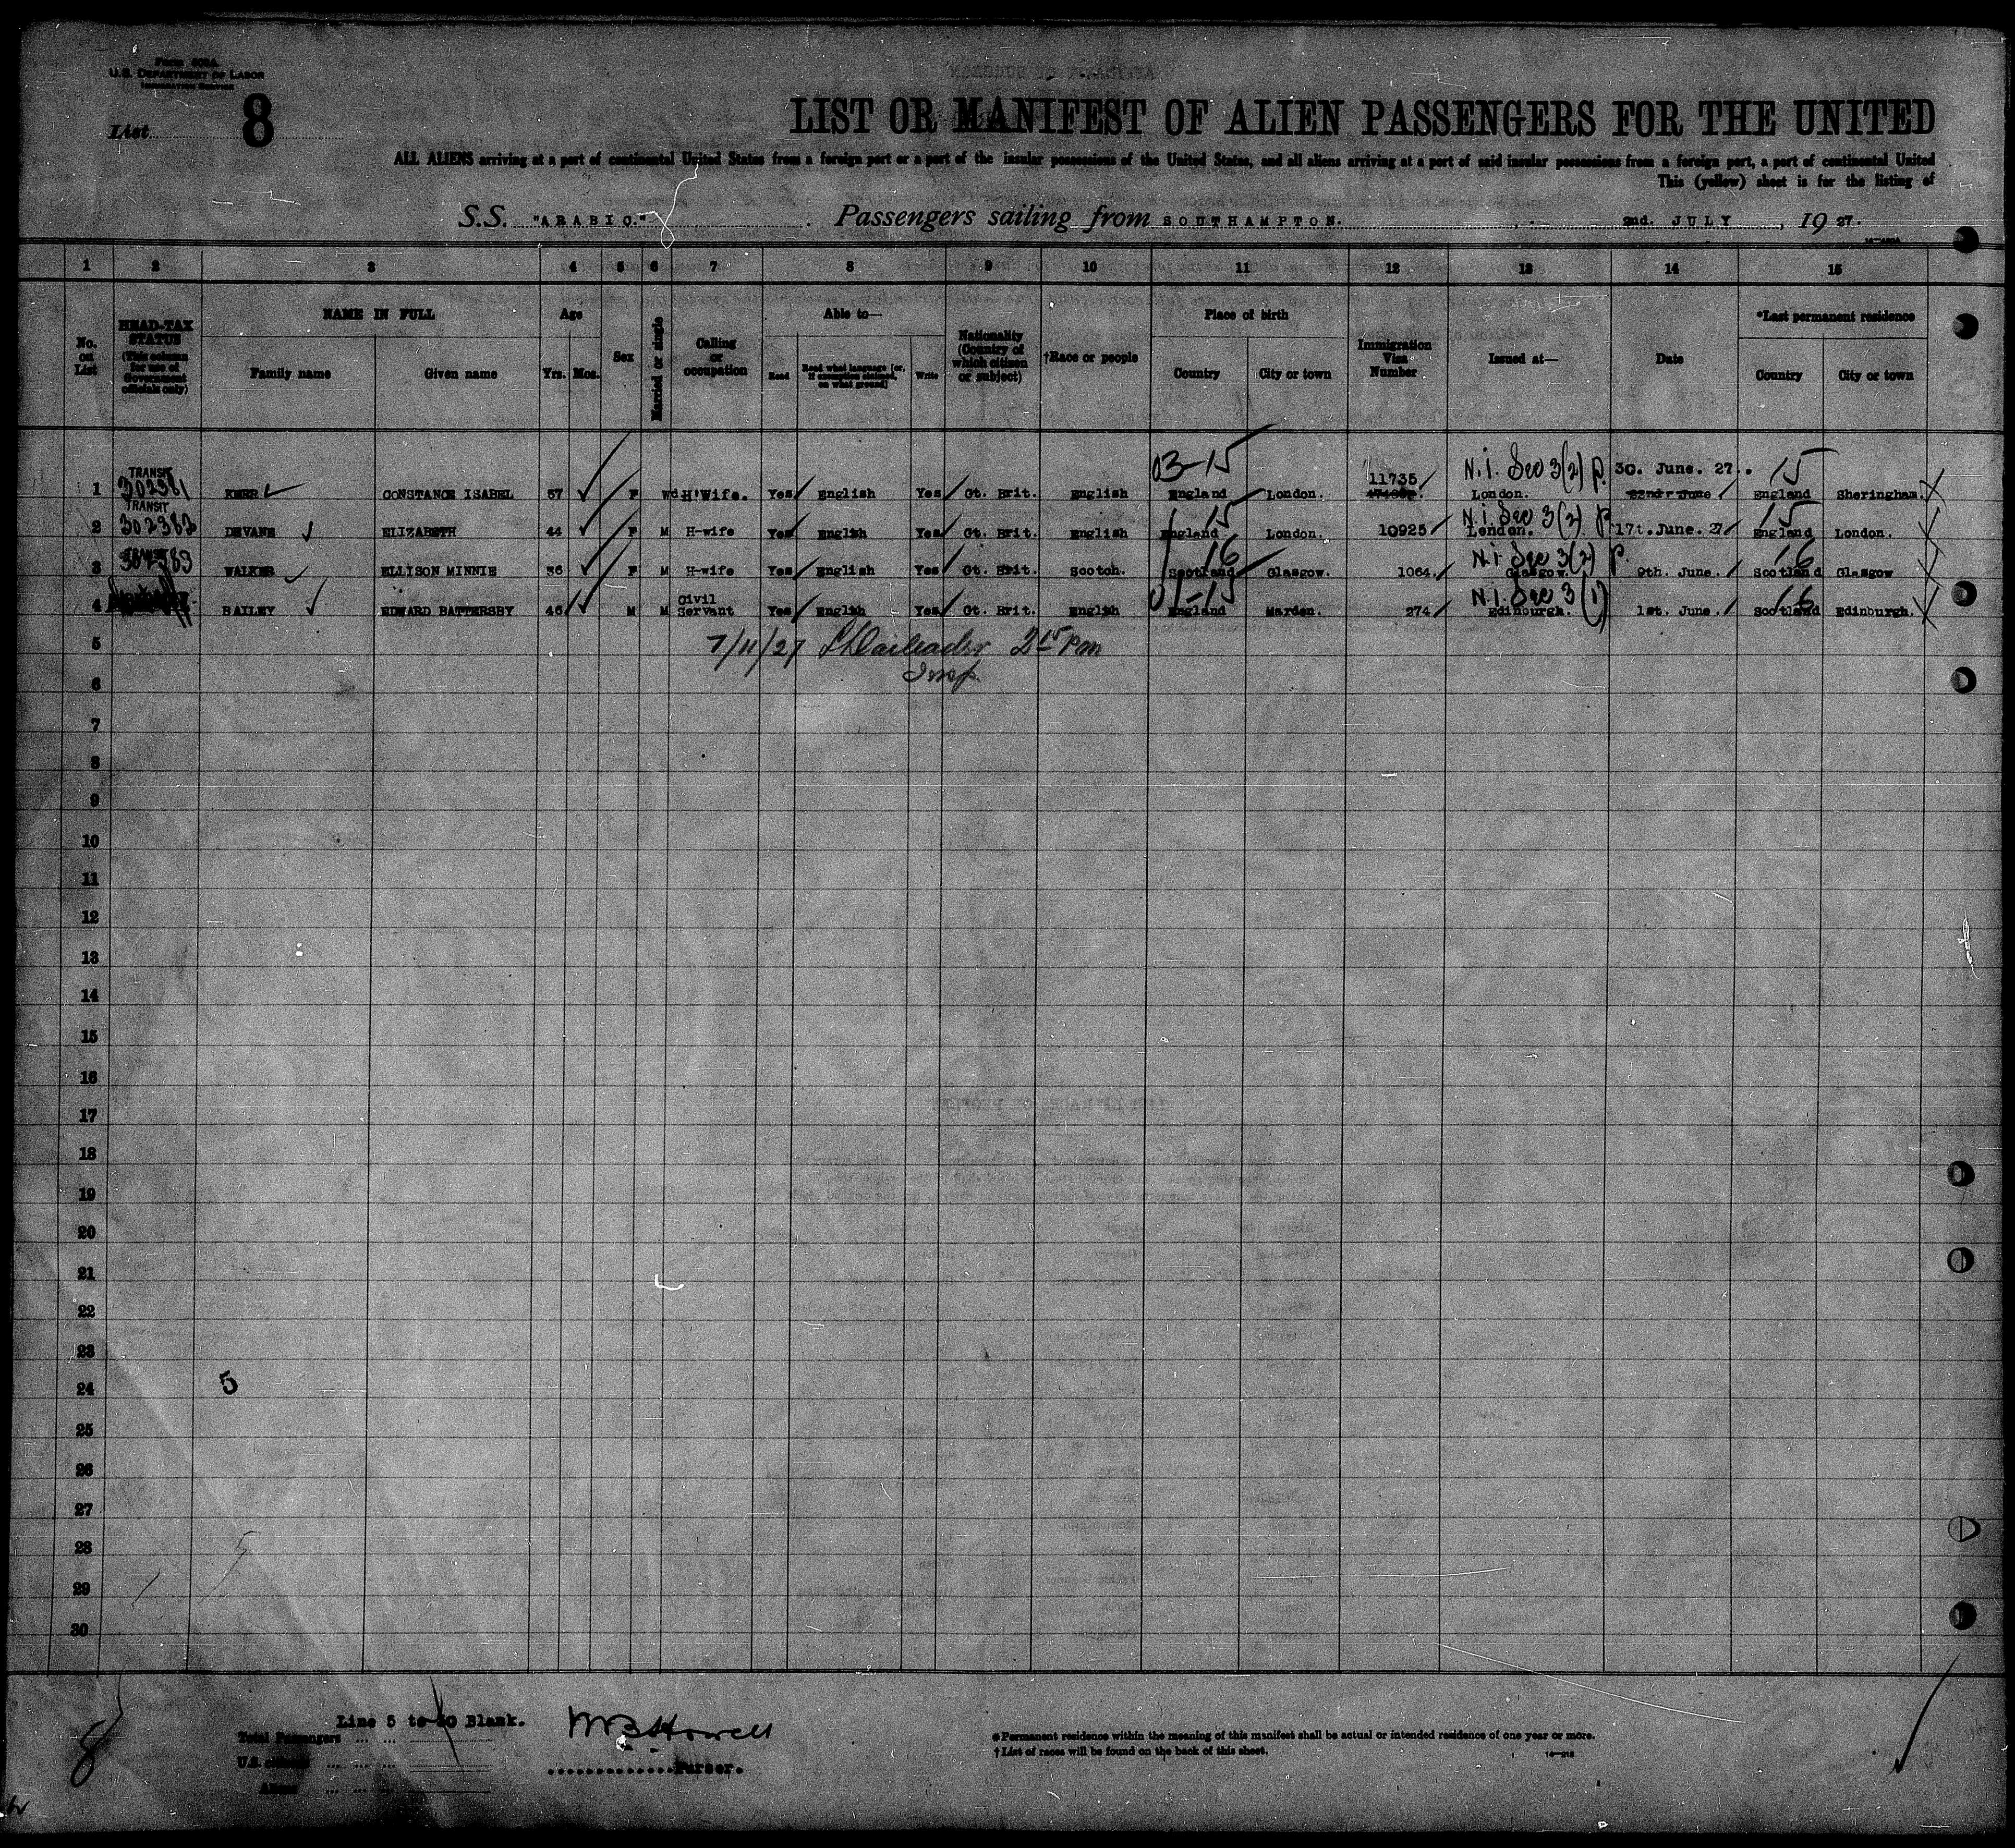 Form 500A
U.S. DEPARTMENT OF LABOR
IMMIGRATION SERVICE
List 8
LIST OR MANIFEST OF ALIEN PASSENGERS FOR THE UNITED
ALL ALIENS arriving at a port of continental United States from a foreign port or a port of the insular possessions of the United States, and all aliens arriving at a port of said insular possessions from a foreign port, a port of continental United
This (yellow) sheet is for the listing of
S.S. "ARABIC." Passengers sailing from SOUTHAMPTON. 2nd. JULY, 1927.
1 2 3 4 5 6 7 8 9 10 11 12 13 14 15
No. on List
HEAD-TAX STATUS (This column for use of Government officials only)
NAME IN FULL
Family name Given name
Age
Yrs. Mos.
Sex
Married or single
Calling or occupation
Able to—
Read Read what language [or, if exemption claimed, on what ground] Write
Nationality (Country of which citizen or subject)
†Race or people
Place of birth
Country City or town
Immigration Visa Number
Issued at—
Date
*Last permanent residence
Country City or town
03-15 11735 N.I. Sec 3(2) P. 30. June. 27. 15
1 TRANSIT 302381 KERR CONSTANCE ISABEL 57 F Wd H'Wife. Yes English Yes Gt. Brit. English England London. London. 22nd June England Sheringham.
15 N.I. Sec 3(2) P 15
2 TRANSIT 302382 DEVANE ELIZABETH 44 F M H-wife Yes English Yes Gt. Brit. English England London. 10925 London. 17t. June. 27 England London.
16 N.I. Sec 3(2) P. 16
3 302383 WALKER ELLISON MINNIE 36 F M H-wife Yes English Yes Gt. Brit. Scotch. Scotland Glasgow. 1064. Glasgow. 9th. June. Scotland Glasgow
01-15 N.I. Sec 3(1) 16
4 BAILEY EDWARD BATTERSBY 46 M M Civil Servant Yes English Yes Gt. Brit. English England Marden. 274 Edinburgh. 1st. June. Scotland Edinburgh.
5 7/11/27 2 15 Pm
Insp.
6
7
8
9
10
11
12
13
14
15
16
17
18
19
20
21
22
23
24
5
25
26
27
28
29
30
8
Line 5 to 30 Blank.
Total Passengers
U.S. citizens
Aliens
W B Howell
Purser.
*Permanent residence within the meaning of this manifest shall be actual or intended residence of one year or more.
†List of races will be found on the back of this sheet.